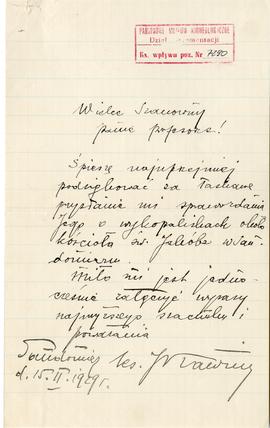 PAŃSTWOWE MUZEUM ARCHEOLOGICZNE
Dział Dokumentacji
Ks. wpływu poz. Nr 7390
Wielce Szanowny
panie profesorze!
Śpieszę najupszejmiej
podziękować za łaskawe
przysłanie mi sprawozdania
Jego o wykopaliskach około
kościoła św. Jakóba w San-
domierzu.
Miło mi jest jedno-
cześnie załączyć wyrazy
najwyższego szacunku i
poważania
ks. J
d. 15. II. 1929 r.